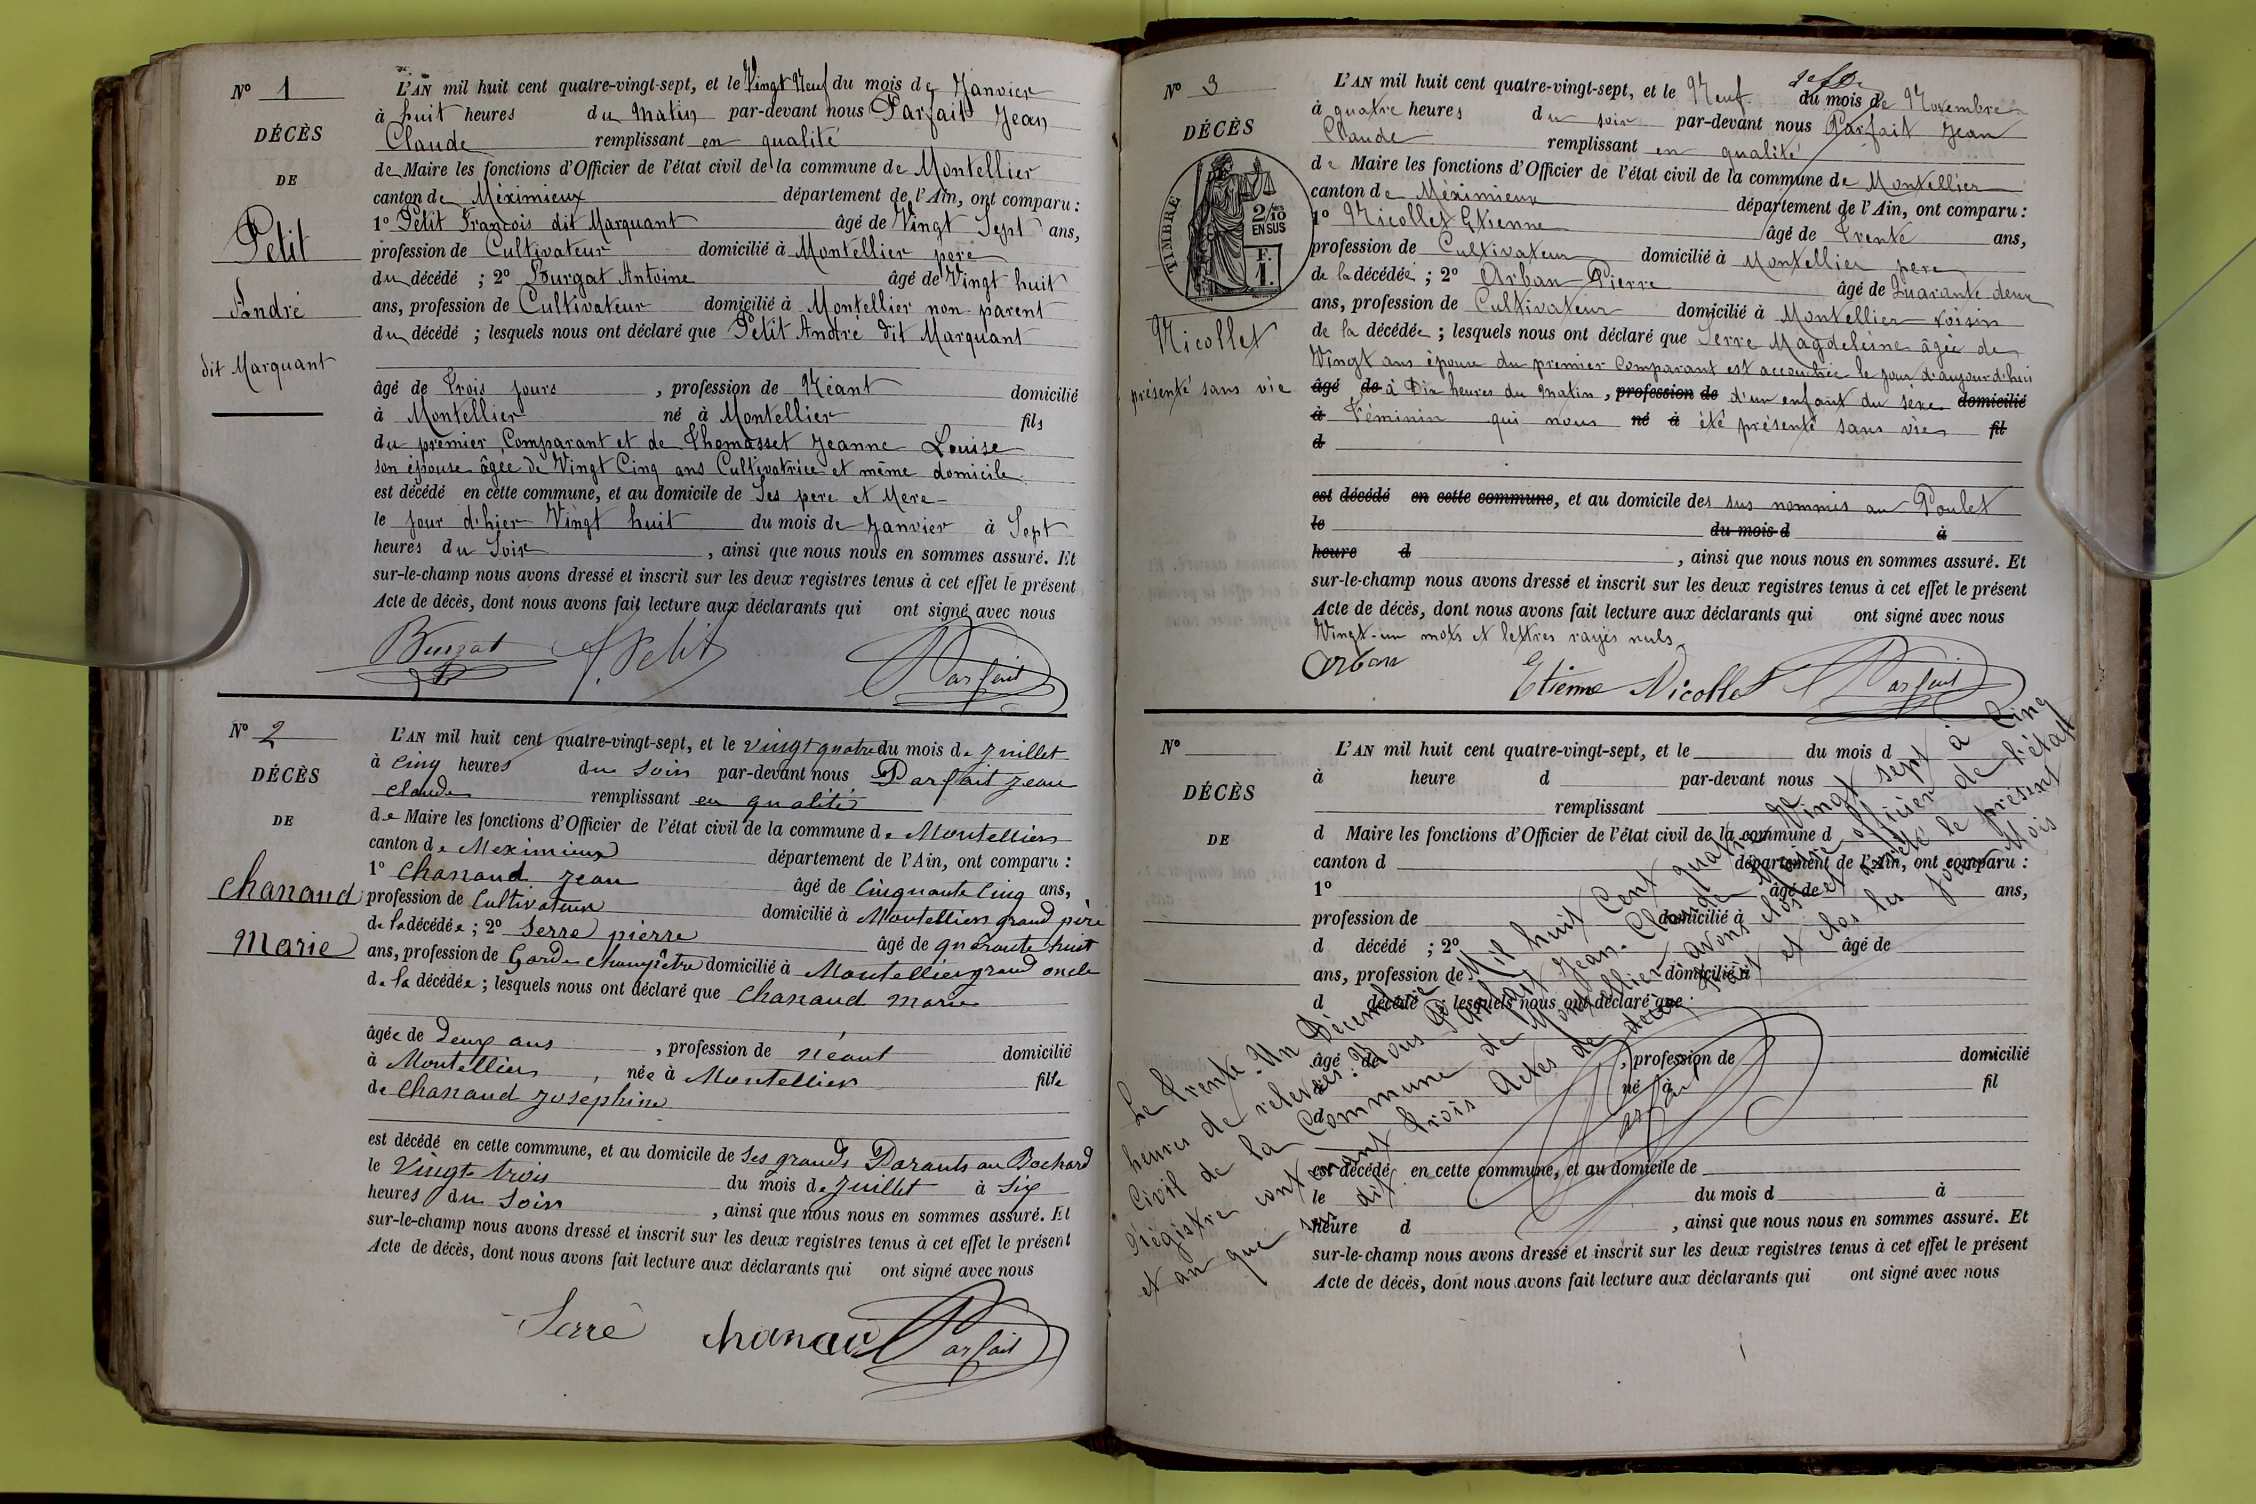 N° 1
DÉCÈS
DE
Petit
André
dit Marquant
L'AN mil huit cent quatre-vingt-sept, et le Vingt Neuf du mois de Janvier
à huit heures du Matin par-devant nous Parfait Jean
Claude remplissant en qualité
de Maire les fonctions d'Officier de l'état civil de la commune de Montellier
canton de Méximieux département de l'Ain, ont comparu :
1° Petit François dit Marquant âgé de Vingt Sept ans,
profession de Cultivateur domicilié à Montellier père
du décédé ; 2° Burgat Antoine âgé de Vingt huit
ans, profession de Cultivateur domicilié à Montellier non parent
du décédé ; lesquels nous ont déclaré que Petit André dit Marquant
âgé de Trois jours , profession de Néant domicilié
à Montellier né à Montellier fils
du premier Comparant et de Thomasset Jeanne Louise
son épouse âgée de Vingt Cinq ans Cultivatrice et même domicile
est décédé en cette commune, et au domicile de Ses père et Mère
le jour d'hier Vingt huit du mois de Janvier à Sept
heures du Soir , ainsi que nous nous en sommes assuré. Et
sur-le-champ nous avons dressé et inscrit sur les deux registres tenus à cet effet le présent
Acte de décès, dont nous avons fait lecture aux déclarants qui ont signé avec nous
Burgat f. Petit Parfait
N° 2
DÉCÈS
DE
Chanaud
Marie
L'AN mil huit cent quatre-vingt-sept, et le vingt quatre du mois de Juillet
à cinq heures du soir par-devant nous Parfait Jean
claude remplissant en qualité
de Maire les fonctions d'Officier de l'état civil de la commune de Montellier
canton de Meximieux département de l'Ain, ont comparu :
1° Chanaud Jean âgé de Cinquante Cinq ans,
profession de Cultivateur domicilié à Montellier grand père
de la décédée ; 2° Serre pierre âgé de quarante huit
ans, profession de Garde champêtre domicilié à Montellier grand oncle
de la décédée ; lesquels nous ont déclaré que Chanaud Marie
âgée de deux ans , profession de néant domicilié
à Montellier , née à Montellier fille
de Chanaud Josephine
est décédé en cette commune, et au domicile de Ses grands Parants au Bochard
le Vingt trois du mois de Juillet à Six
heures du Soir , ainsi que nous nous en sommes assuré. Et
sur-le-champ nous avons dressé et inscrit sur les deux registres tenus à cet effet le présent
Acte de décès, dont nous avons fait lecture aux déclarants qui ont signé avec nous
Serre Chanau Parfait
N° 3
DÉCÈS
TIMBRE
2/10 EN SUS
F. 1.
Nicollet
présenté sans vie
L'AN mil huit cent quatre-vingt-sept, et le Neuf du mois de Novembre
à quatre heures du soir par-devant nous Parfait Jean
Claude remplissant en qualité
de Maire les fonctions d'Officier de l'état civil de la commune de Montellier
canton de Méximieux département de l'Ain, ont comparu :
1° Nicollet Etienne âgé de Trente ans,
profession de Cultivateur domicilié à Montellier père
de la décédée ; 2° Arban Pierre âgé de Quarante deux
ans, profession de Cultivateur domicilié à Montellier voisin
de la décédée ; lesquels nous ont déclaré que Serre Magdeleine âgée de
Vingt ans épouse du premier Comparant est accouchée le jour d'aujourd'hui
âgé de à Dix heures du matin, profession de d'un enfant du sexe domicilié
à Féminin qui nous né à été présenté sans vie fil
d
est décédé en cette commune, et au domicile des sus nommés au Poulet
le du mois d à
heure d , ainsi que nous nous en sommes assuré. Et
sur-le-champ nous avons dressé et inscrit sur les deux registres tenus à cet effet le présent
Acte de décès, dont nous avons fait lecture aux déclarants qui ont signé avec nous
Vingt-un mots et lettres rayés nuls
Arban Etienne Nicollet Parfait
N°
DÉCÈS
DE
L'AN mil huit cent quatre-vingt-sept, et le du mois d
à heure d par-devant nous
remplissant
d Maire les fonctions d'Officier de l'état civil de la commune d
canton d département de l'Ain, ont comparu :
1° âgé de ans,
profession de domicilié à
d décédé ; 2° âgé de
ans, profession de domicilié à
d décédé ; lesquels nous ont déclaré que
âgé de , profession de domicilié
à né à fil
d
est décédé en cette commune, et au domicile de
le du mois d à
heure d , ainsi que nous nous en sommes assuré. Et
sur-le-champ nous avons dressé et inscrit sur les deux registres tenus à cet effet le présent
Acte de décès, dont nous avons fait lecture aux déclarants qui ont signé avec nous
Le Trente-Un Décembre Mil huit Cent quatre Vingt sept à Cinq
heures de relevée. Nous Parfait Jean-Claude Maire officier de l'état
Civil de la Commune de Montellier avons clos et arrêté le présent
régistre contenant trois Actes de décès fait et clos les jour Mois
et an que dit
Parfait